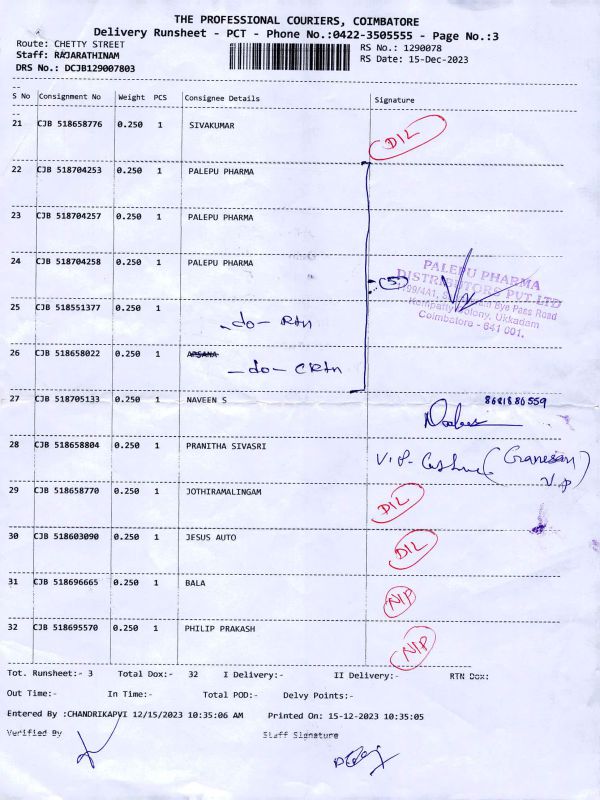 THE PROFESSIONAL COURIERS, COIMBATORE
Delivery Runsheet - PCT - Phone No.:0422-3505555 - Page No.:3
Route: CHETTY STREET RS No.: 1290078
Staff: RAJARATHINAM RS Date: 15-Dec-2023
DRS No.: DCJB129007803
S No Consignment No Weight PCS Consignee Details Signature
21 CJB 518658776 0.250 1 SIVAKUMAR DIL
22 CJB 518704253 0.250 1 PALEPU PHARMA
23 CJB 518704257 0.250 1 PALEPU PHARMA
24 CJB 518704258 0.250 1 PALEPU PHARMA
(5)
PALEPU PHARMA
DISTRIBUTORS PVT LTD
Bye Pass Road
Colony, Ukkadam
Coimbatore - 641 001.
25 CJB 518551377 0.250 1 -do- Rtn
26 CJB 518658022 0.250 1 -do- CRtn
27 CJB 518705133 0.250 1 NAVEEN S 8681886559
28 CJB 518658804 0.250 1 PRANITHA SIVASRI V.P- (Ganesan) V.P
29 CJB 518658770 0.250 1 JOTHIRAMALINGAM DIL
30 CJB 518603090 0.250 1 JESUS AUTO DIL
31 CJB 518696665 0.250 1 BALA NIP
32 CJB 518695570 0.250 1 PHILIP PRAKASH NIP
Tot. Runsheet:- 3 Total Dox:- 32 I Delivery:- II Delivery:- RTN Dox:
Out Time:- In Time:- Total POD:- Delvy Points:-
Entered By :CHANDRIKAPVI 12/15/2023 10:35:06 AM Printed On: 15-12-2023 10:35:05
Verified By Staff Signature